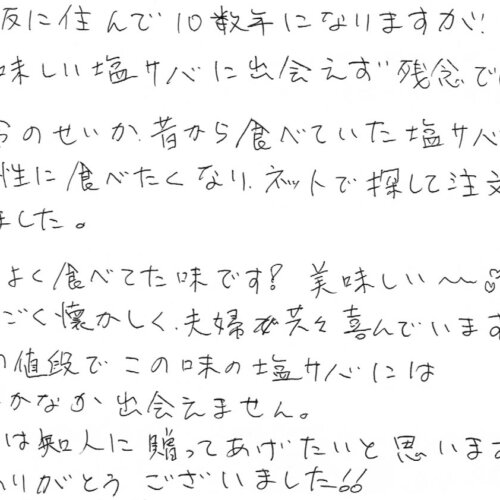 阪に住んで10数年になりますが、
味しい塩サバに出会えず残念で
のせいか、昔から食べていた塩サバ
性に食べたくなり、ネットで探して注文
ました。
よく食べてた味です!美味しい〜
ごく懐かしく、夫婦共々喜んでいます
の値段でこの味の塩サバには
かなか出会えません。
は知人に贈ってあげたいと思います
りがとうございました!!